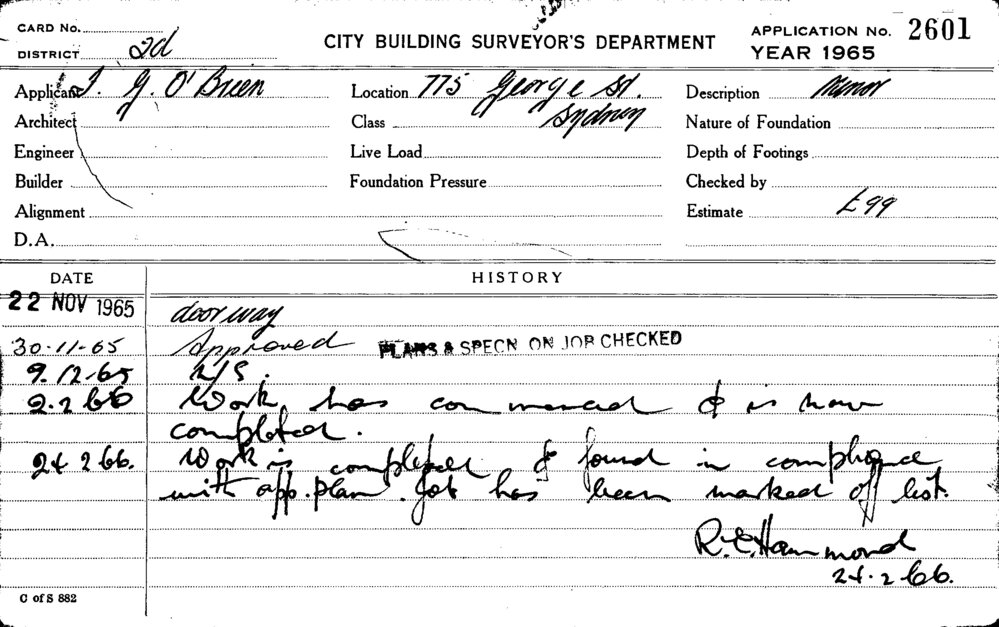 CARD No.
DISTRICT 2d
CITY BUILDING SURVEYOR'S DEPARTMENT
APPLICATION No. 2601
YEAR 1965
Applicant J. G. O'Brien
Location 775 George St.
Sydney
Description Minor
Architect
Class
Nature of Foundation
Engineer
Live Load
Depth of Footings
Builder
Foundation Pressure
Checked by
Alignment
Estimate £99
D.A.
DATE HISTORY
22 NOV 1965 doorway
30-11-65 Approved PLANS & SPECN ON JOB CHECKED
9.12.65 N/S.
2.2 66 Work has commenced & is now
completed.
24 2 66. Work is completed & found in compliance
with app. plan. Job has been marked off list.
R.E. Hammond
24.2 66.
C of S 882